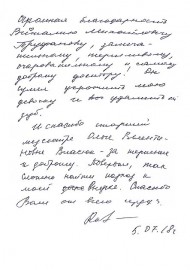 Огромная благодарность
Виталию Михайловичу
замеча-
тельному, терпеливому,
и самому
доброму доктору. Он
сумел укротить мою
девочку и все удалить ей
зуб.
И спасибо старшей
медсестре Ольге Валенти-
новне Власюк - за терпение
и доброту. Поверьте, так
сложно найти подход к
моей дочке Спасибо
Вам от всего сердца.
5.07.18г.